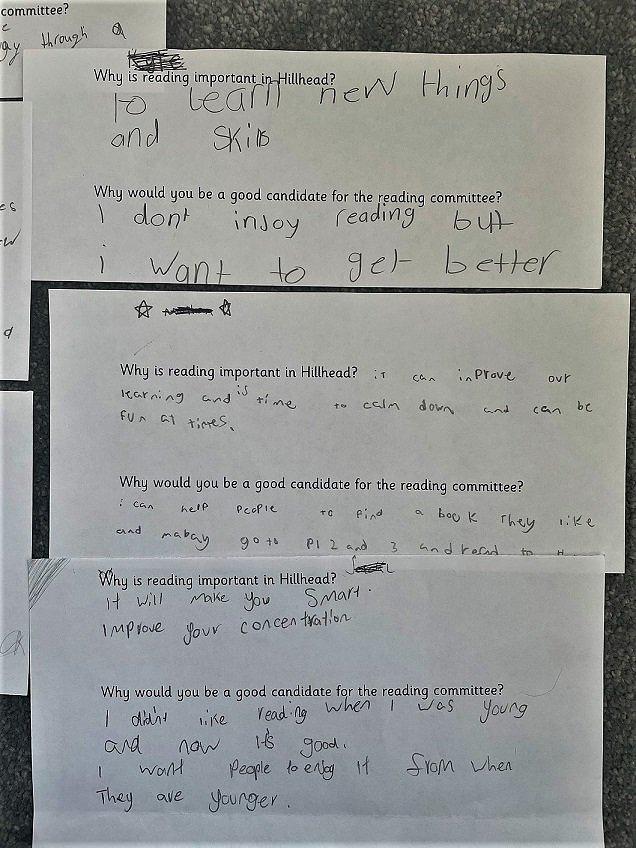 committee?
through a
Why is reading important in Hillhead?
to learn new things
and skills
Why would you be a good candidate for the reading committee?
I dont injoy reading but
i want to get better
Why is reading important in Hillhead? it can inprove our
learning and is time to calm down and can be
fun at times.
Why would you be a good candidate for the reading committee?
i can help people to find a book They like
and mabay go to P1 2 and 3 and read to
Why is reading important in Hillhead?
It will make you Smart.
Improve your concentration
Why would you be a good candidate for the reading committee?
I didn't like reading when I was young
and now it's good.
I want People to enjoy It from when
They are younger.